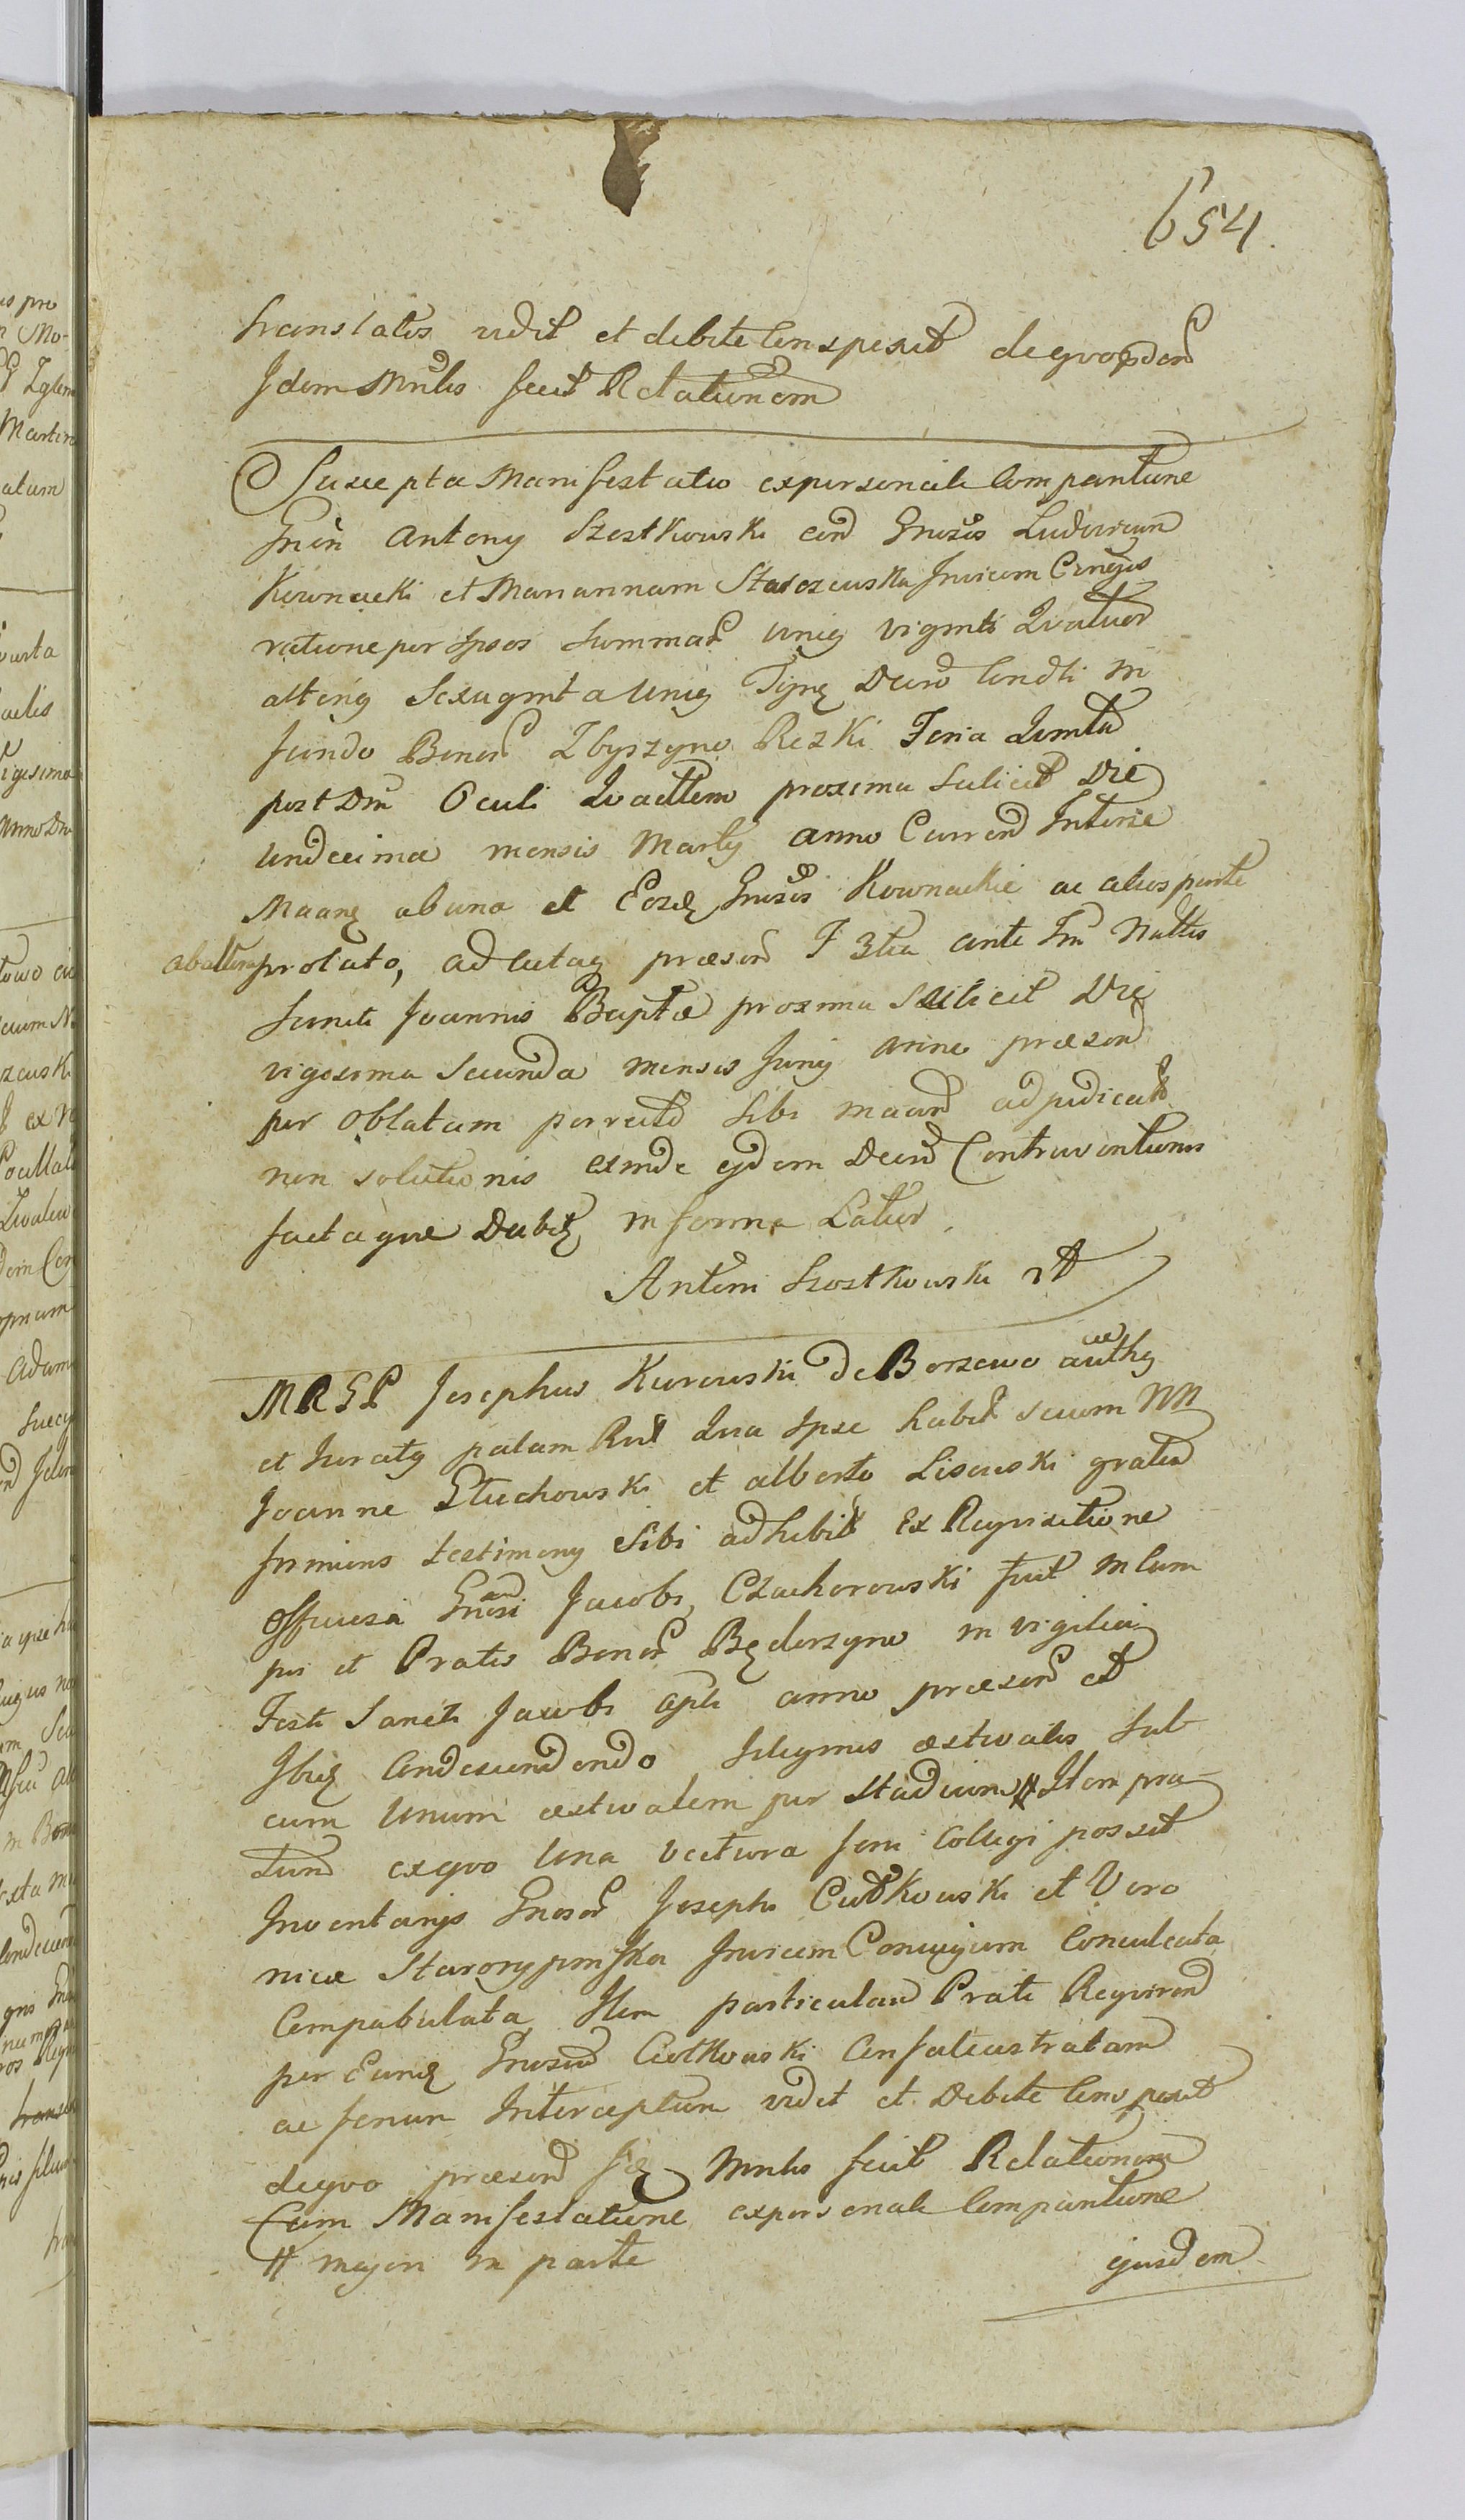 654.
translatos vidit et debite conspexit de quo eodem
Idem Mnlis fecit Relationem
Suscepta Manifestatio ex personali Comparitione
Gnei Antony Szostkowski con Gnosos Ludovicum
Kownacki et Mariannam Starczewska Invicem Cnejgs
ratione per Ipsos Summar unig viginti Quatuor
alterig Sexaginta unig Decrto Condti in
fundo Bonor Zbyszyno Rczki Feria Quinta
post Dm Oculi Quadlem proxima Scilicet Die
undecima mensis Marty anno Curren Interse
Maang ab una et Eosdq Gnosos Kownackie ac alios parte
ab altera prolato, ad actaq præsen F 3tia ante Fm Nattis
Sancti Joannis Baptæ proxima Scilicet Die
vigesima Secunda mensis Juny anno præsen
per Oblatam porrecto Sibi Maan adjudicat
non solutionis exinde ejdem Decrti Contraventionis
factaque Dabitq in forma Latior.
Antoni Szostkowski mp
MRGP Josephus Kurowski de Borzewo authg
et Juratg palam Rnt Qua Ipse habit secum NN
Joanne Głuchowski et alberto Lisowski gratia
firmioris testimony Sibi adhibit Ex Requisitione
Officiosa Gnosi Jacobi Czachorowski fuit in Cam
pis et Pratis Bonor Będorzyno in vigilia
Festi Sancti Jacobi apli anno præsen et
Ibiq Condescendendo Siliginis æstivalis Sul
cum Unum æstivalem per Stadium # Item pra
tum ex quo Una Vectura feni Colligi possit
Inventarys Gnosor Josephi Ciotkowski et Vero
nicæ Starorypinska Invicem Conjugum Conculcata
Compabulata Item particulam Prati Requiren
per Eundq Gnosum Ciotkowski Confalcastratam
ac fenum Interceptum vidit et Debite Conspexit
de quo præsen Mnlis fecit Relationem
Cum Manifestatione ex personali Comparitione
# majori in parte
ejusdem